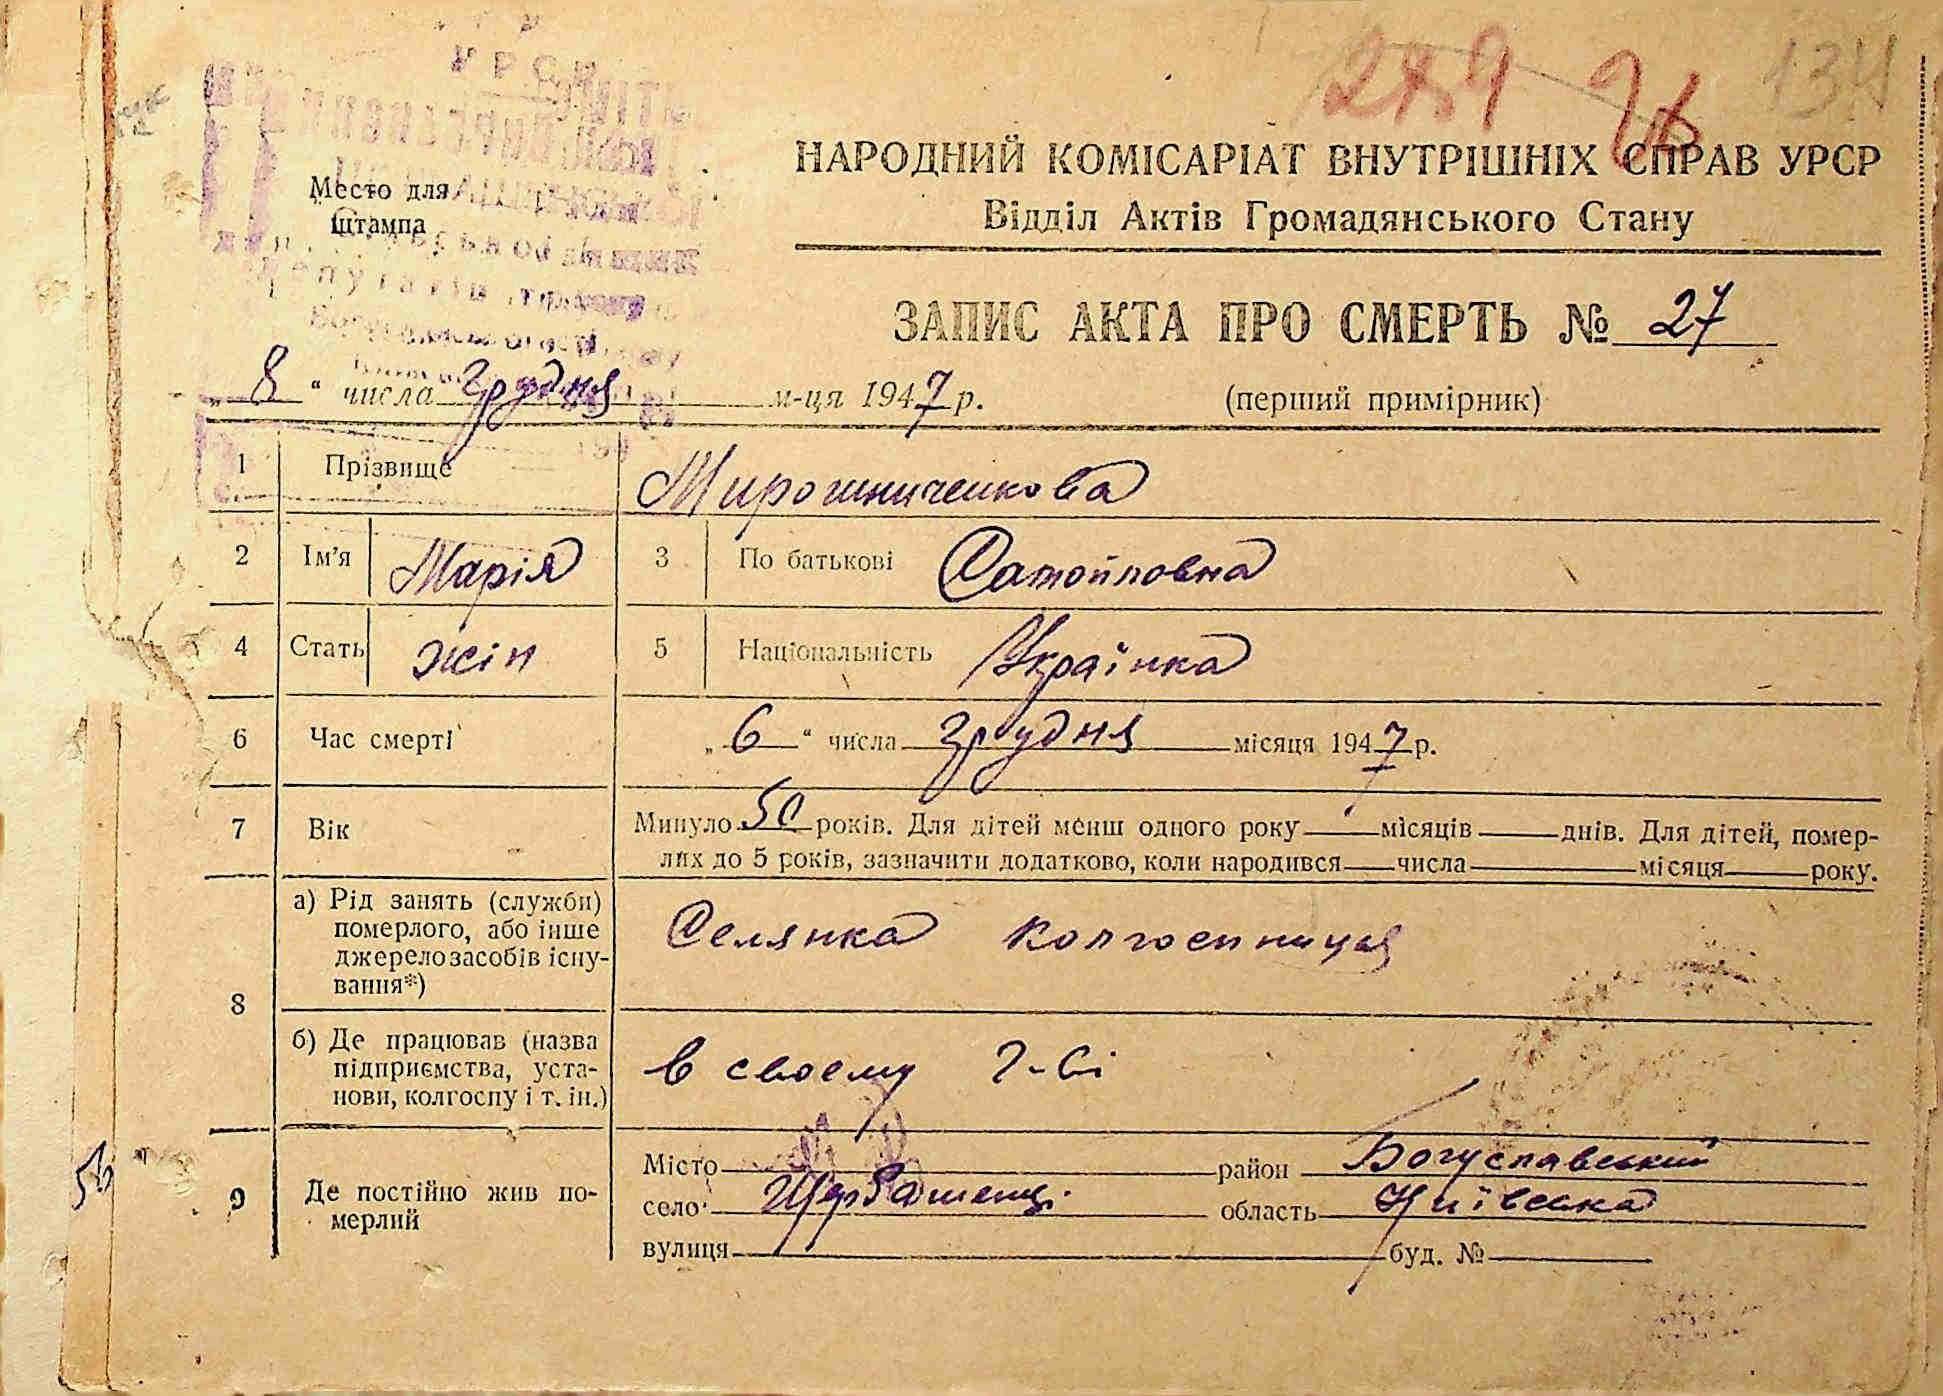 279 134
УРСР
Место для
штампа
НАРОДНИЙ КОМІСАРІАТ ВНУТРІШНІХ СПРАВ УРСР
Відділ Актів Громадянського Стану
ЗАПИС АКТА ПРО СМЕРТЬ № 27
„ 8 “ числа Грудня м-ця 1947 р. (перший примірник)
1 Прізвище Мирошниченкова
2 Ім'я Марія 3 По батькові Самойловна
4 Стать жін 5 Національність Українка
6 Час смерті „ 6 “ числа Грудня місяця 1947 р.
7 Вік Минуло 50 років. Для дітей менш одного року — місяців — днів. Для дітей, помер-
лих до 5 років, зазначити додатково, коли народився — числа — місяця — року.
8 а) Рід занять (служби)
померлого, або інше
джерело засобів існу-
вання*) Селянка колгоспниця
б) Де працював (назва
підприємства, уста-
нови, колгоспу і т. ін.) в своему г-сі
9 Де постійно жив по-
мерлий
Місто район Богуславський
село Щербашенці область Київська
вулиця буд. №